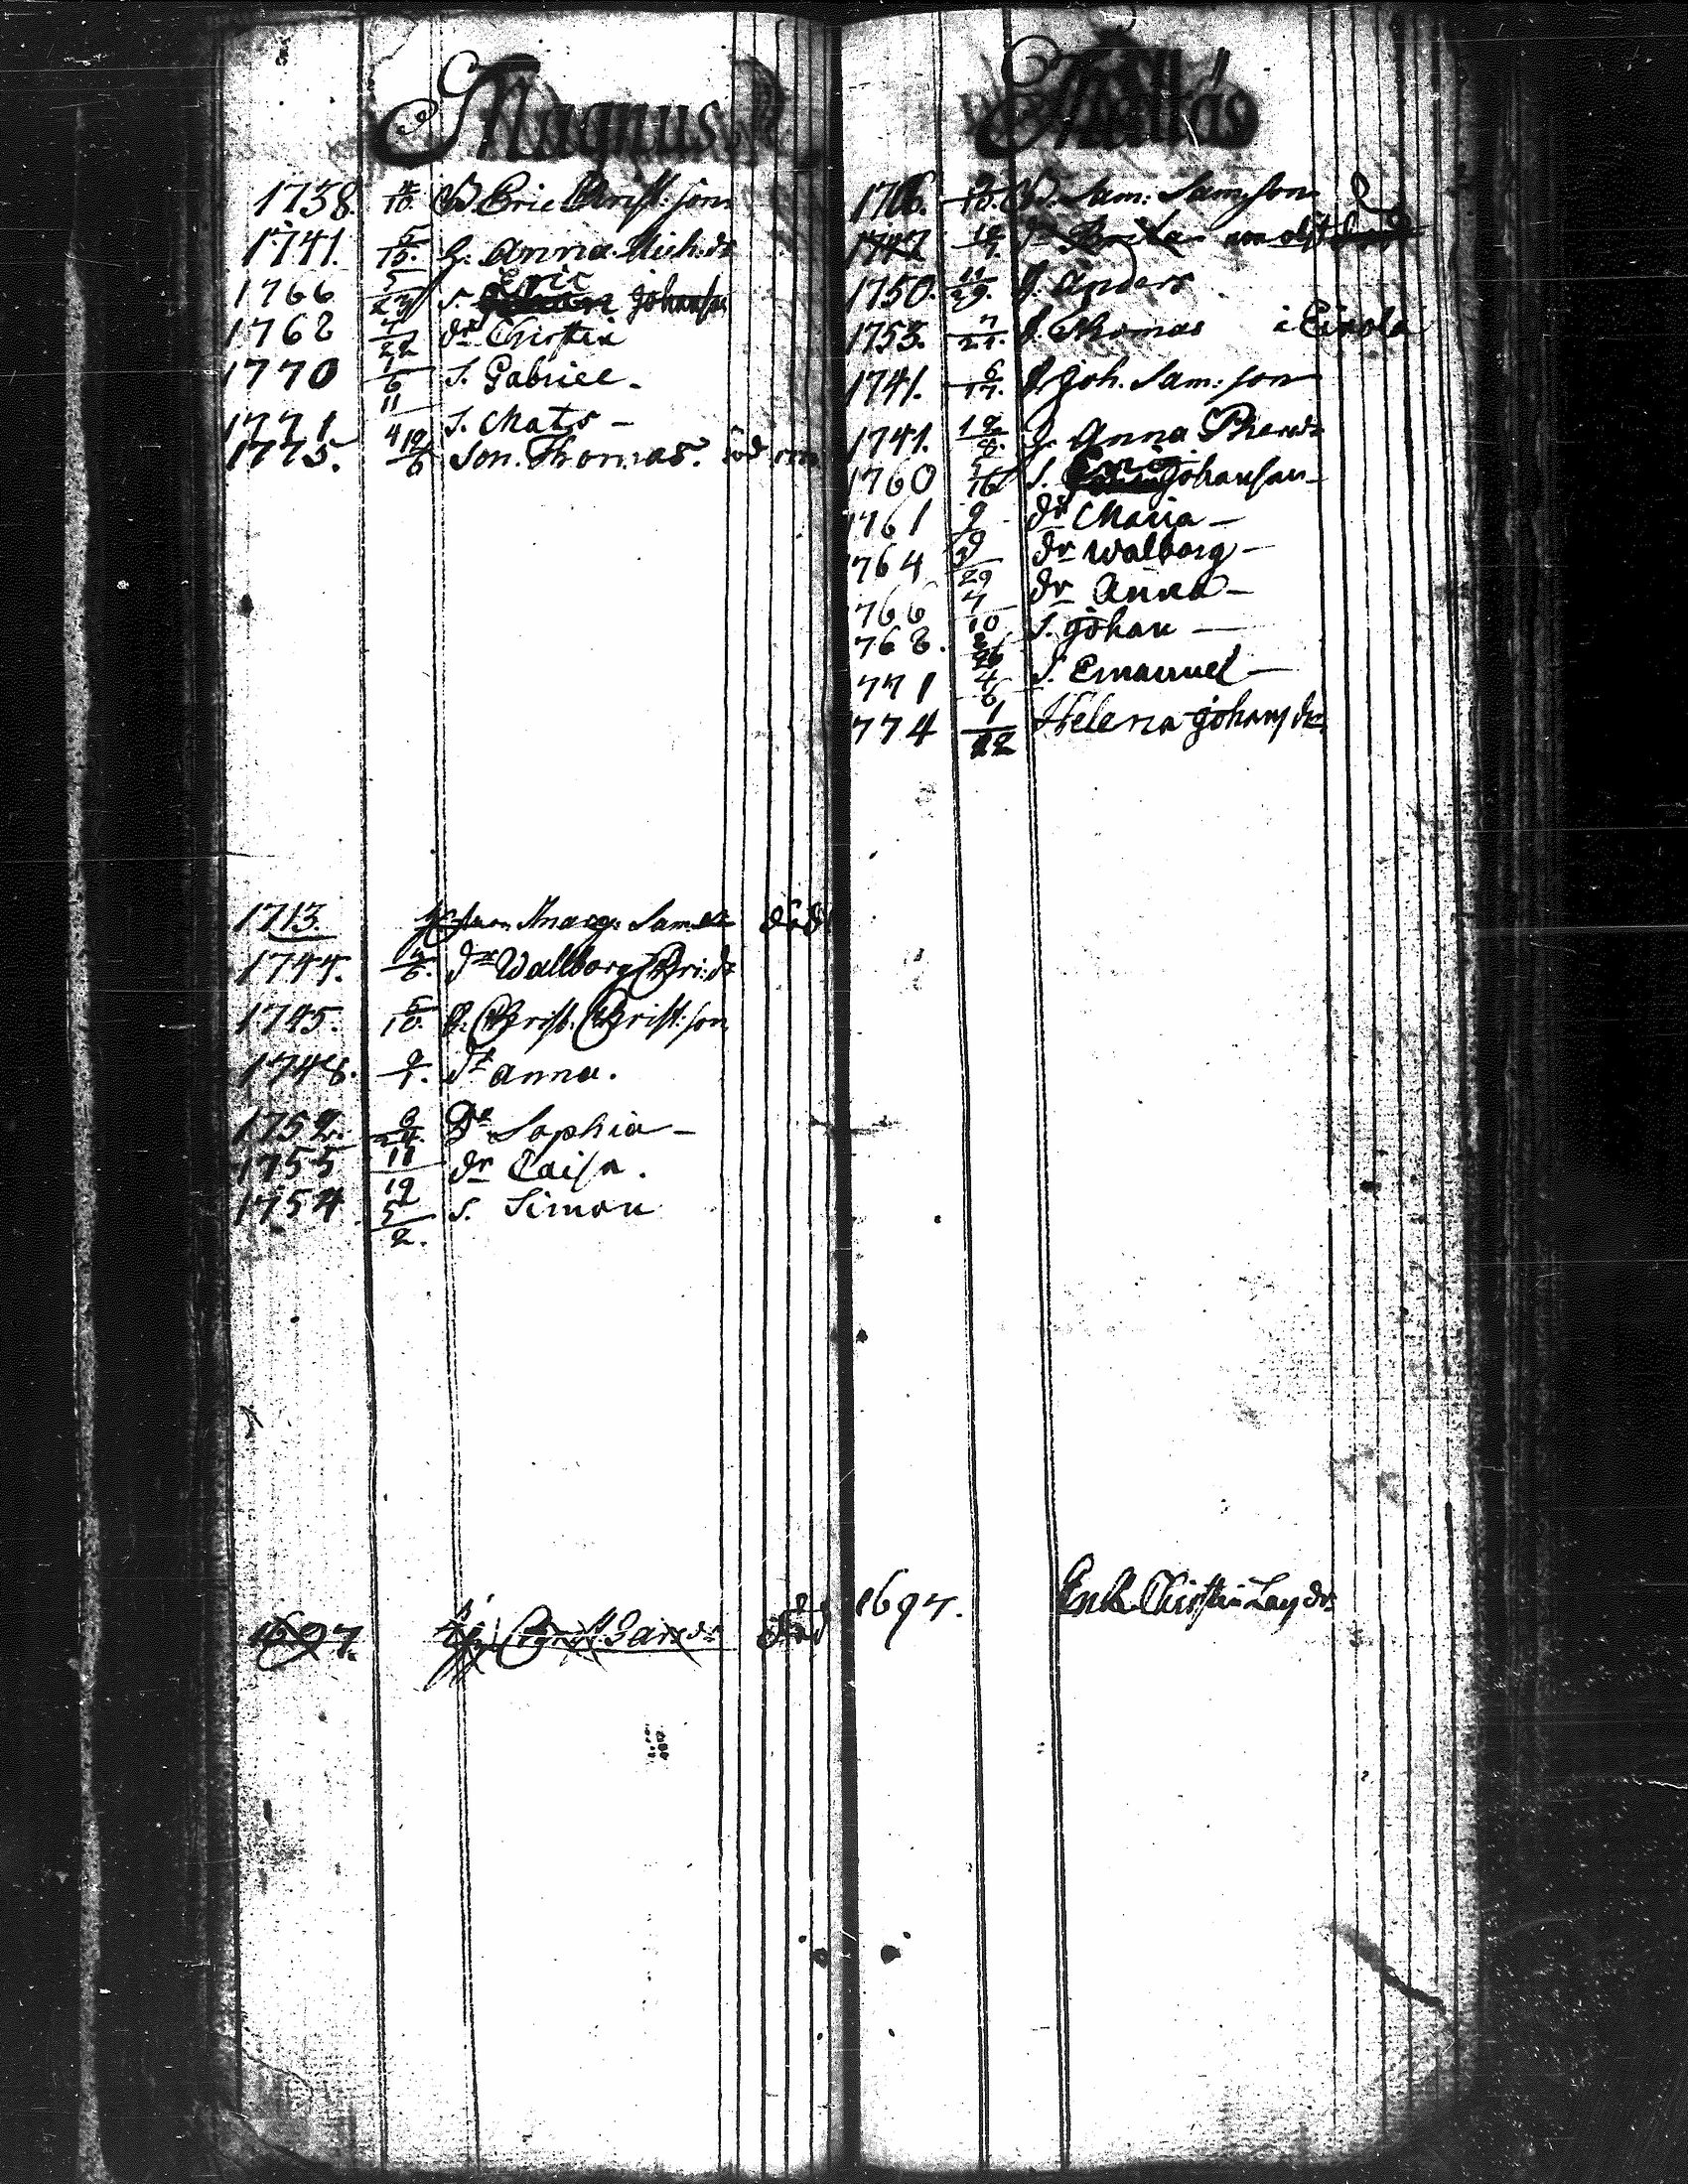 Magnus
1738. Eric Christ: son
1741. 5/15. H. Anna Mich: dr
1766 5/23 S. Eric Johanss
1768 4/22 dr Christin
1770 1/6 S. Gabriel
1771 11/4 S. Mats
1775. 12/6 Son. Thomas. död
1713. Marg: Sam död
1744. dr Wallborg Chri: dr
1745. 5/10. S. Christ. Christ: son
1748. 9/1. dr Anna.
1752. 3/24. Dr Sophia
1755 11/19 dr Caisa.
1754 5/2. S. Simon
1697. död
Mattas
Sam: Samson
1747 Brita
1750. 11/29. S. Anders
1753. 7/21. S. Thomas i Eirola
1741. 6/17. S. Joh. Sam: son
1741. 12/8. H. Anna
1760 5/16 S. Eric Johansson
1761 9 dr Maria
1764 9/29 dr Walborg
766 7/10 dr Anna
768. 2/26 S. Johan
771 4/6 S. Emanuel
774 1/22 Helena Johans dr
1697. Enk. Christin Lars dr